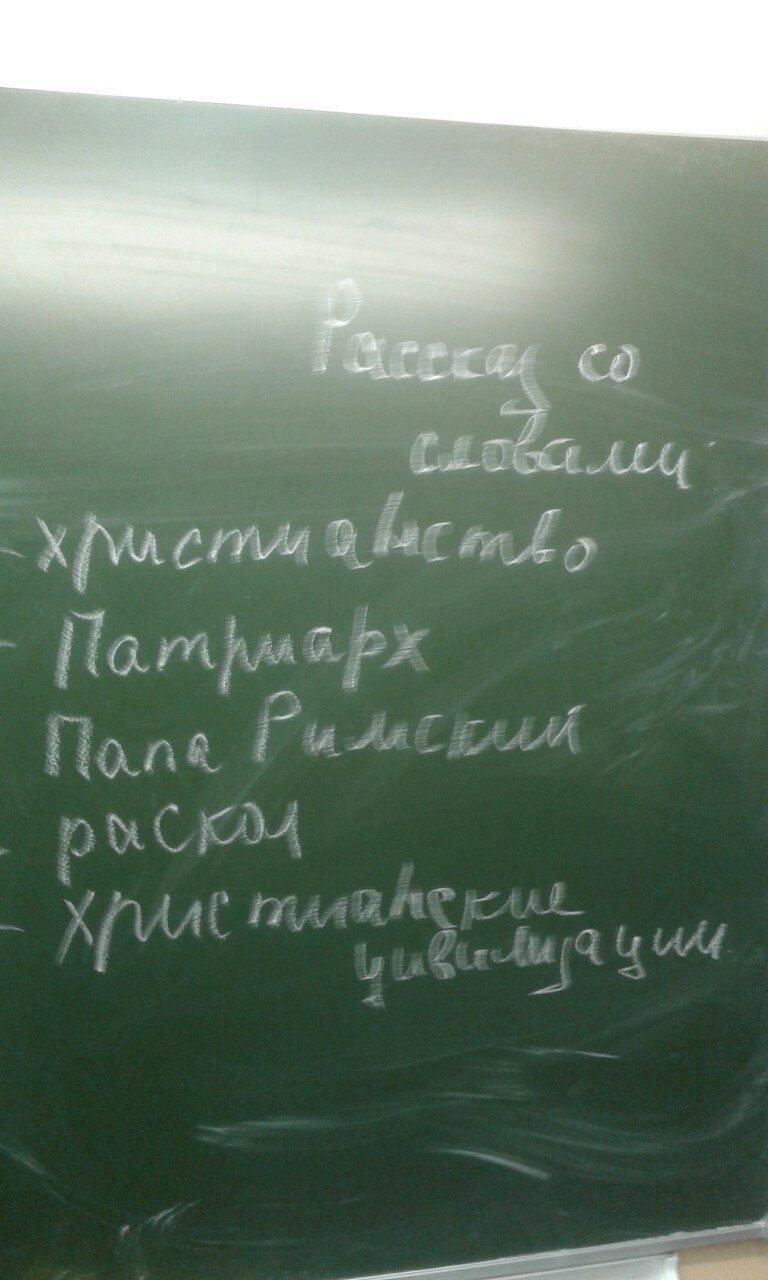 Рассказ со
словами
- христианство
- Патриарх
Папа Римский
- раскол
- христианские
цивилизации